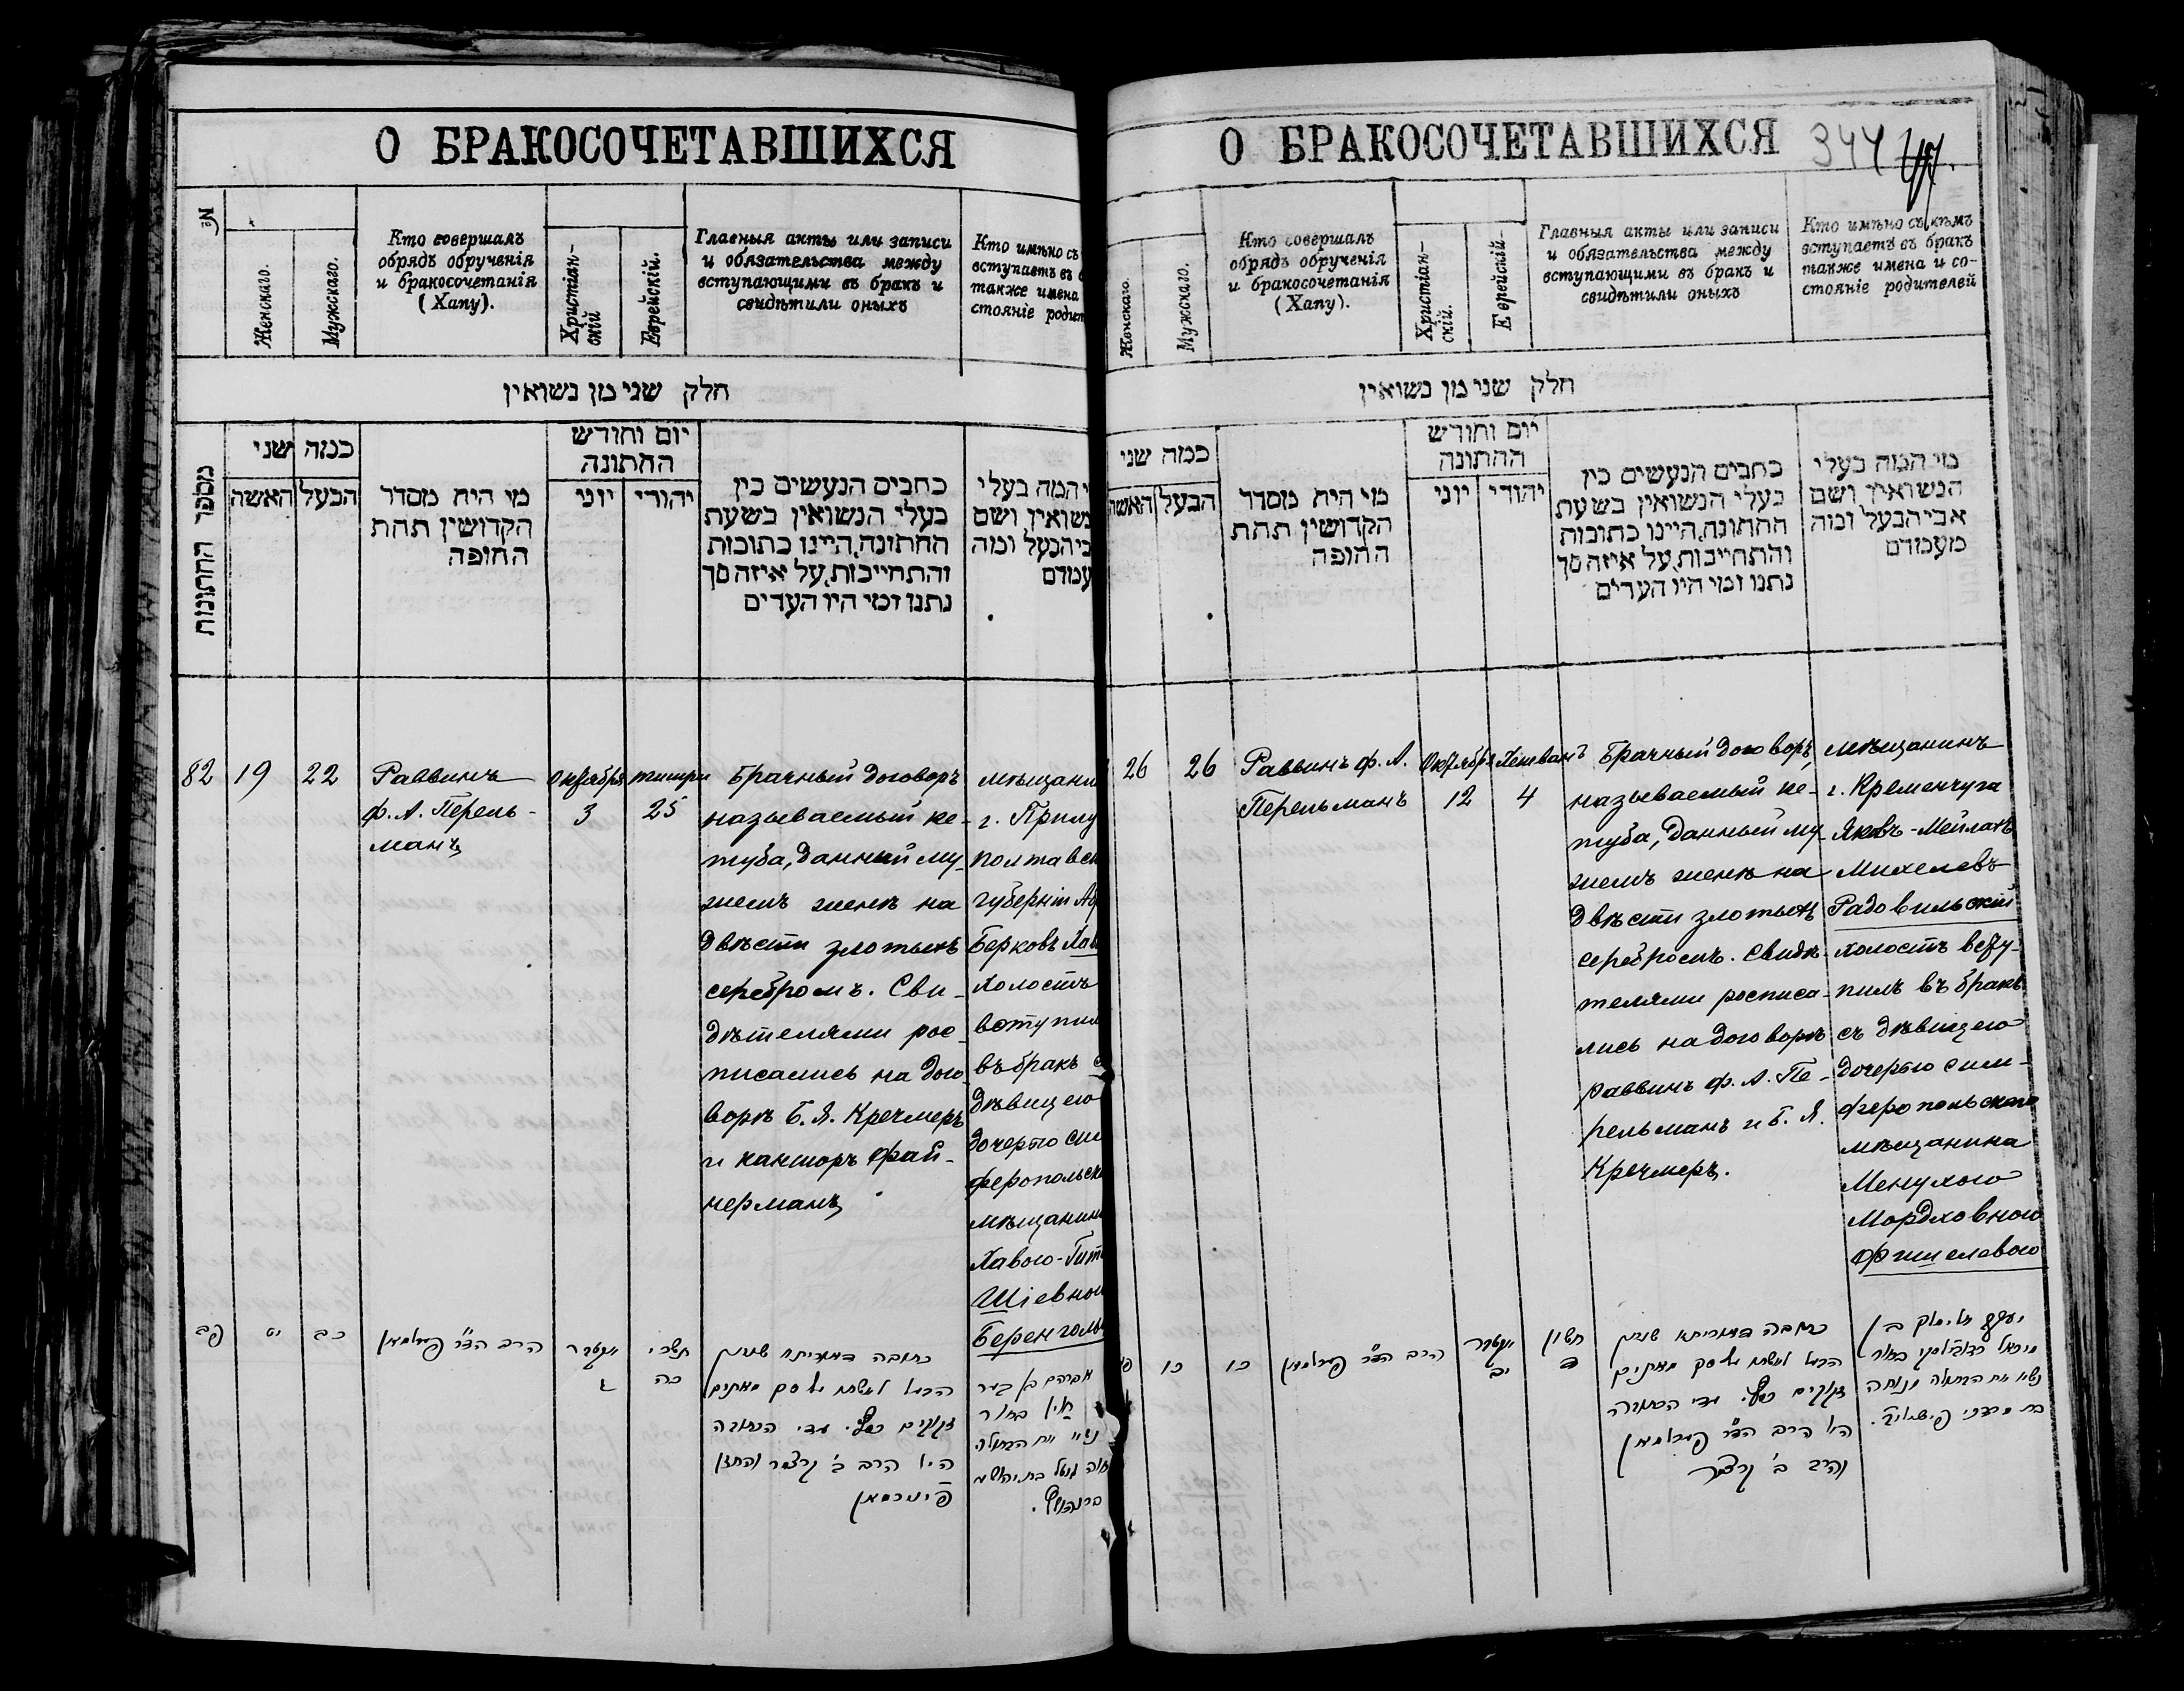 О БРАКОСОЧЕТАВШИХСЯ
№
Женскаго.
Мужскаго.
Кто совершалъ
обрядъ обрученія
и бракосочетанія
(Хапу).
Христіан-
скій
Еврейскій.
Главныя акты или записи
и обязательства между
вступающими въ бракъ и
свидѣтили оныхъ
Кто имѣно съ
вступаетъ въ б
также имена
стояніе родит
חלק שני מן נשואין
מספר החתונות
כמה שני
האשה
הבעל
מי היה מסדר
הקדושין תחת
החופה
יום וחודש
החתונה
יוני
יהודי
כתבים הנעשים בין
בעלי הנשואין בשעת
החתונה, היינו כתובות
והתחייבות, על איזה סך
נתנו ומי היו העדים
י המה בעלי
נשואין, ושם
בי הבעל ומה
עמדם
82
19
22
Раввинъ
Ф. А. Перель-
манъ
Октября
3
тишри
25
Брачный договоръ
называемый ке-
туба, данный му-
жемъ женѣ на
двѣсти злотыхъ
серебромъ. Сви-
дѣтелями рос-
писались на дого-
ворѣ Б. Я. Кречмеръ
и канторъ Фай-
нерманъ
мѣщани
г. Прилу
Полтавск
губерніи Аб
Берковъ Хаи
холостъ
вступил
въ бракъ с
дѣвицею
дочерью Сим
феропольска
мѣщанина
Хавою-Гит
Шіевною
Беренголь
פב
יט
כב
הרב הד״ר פערלמאן
אקטבר
ג
תשרי
כה
כתובה דאורייתא שנתן
הבעל לאשתו על סך מאתים
זקוקים כסף. עדי הכתובה
היו הרב ב׳ קרצמר והחזן
פיינרמאן
אברהם בן בער
חאין בחור
נשוי את הבתולה
חוה גוטל בת יהושע
О БРАКОСОЧЕТАВШИХСЯ
344
Женскаго.
Мужскаго.
Кто совершалъ
обрядъ обрученія
и бракосочетанія
(Хапу).
Христіан-
скій.
Еврейскій.
Главныя акты или записи
и обязательства между
вступающими въ бракъ и
свидѣтили оныхъ
Кто имѣно съ кѣмъ
вступаетъ въ бракъ
также имена и со-
стояніе родителей
חלק שני מן נשואין
כמה שני
האשה
הבעל
מי היה מסדר
הקדושין תחת
החופה
יום וחודש
החתונה
יוני
יהודי
כתבים הנעשים בין
בעלי הנשואין בשעת
החתונה, היינו כתובות
והתחייבות, על איזה סך
נתנו ומי היו העדים
מי המה בעלי
הנשואין, ושם
אבי הבעל ומה
מעמדם
26
26
Раввинъ Ф. А.
Перельманъ
Октября
12
Хешванъ
4
Брачный договоръ,
называемый ке-
туба, данный му-
жемъ женѣ на
двѣсти злотыхъ
серебромъ. Свидѣ-
телями росписа-
лись на договорѣ
раввинъ Ф. А. Пе-
рельманъ и Б. Я.
Кречмеръ.
мѣщанинъ
г. Кременчуга
Яковъ-Мейлахъ
Михелевъ
Радовильскій
холостъ всту-
пилъ въ бракъ
съ дѣвицею
дочерью Сим-
феропольскаго
мѣщанина
Менухою
Мордховною
Фишелевою
כו
כו
הרב הד״ר פערלמאן
אקטבר
יב
חשון
ד
כתובה דאורייתא שנתן
הבעל לאשתו על סך מאתים
זקוקים כסף. עדי הכתובה
היו הרב הד״ר פערלמאן
והרב ב׳ קרצמר
יעקב מיילאך בן
מיכאל ראדאווילסקי בחור
נשוי את הבתולה מנוחה
בת מרדכי